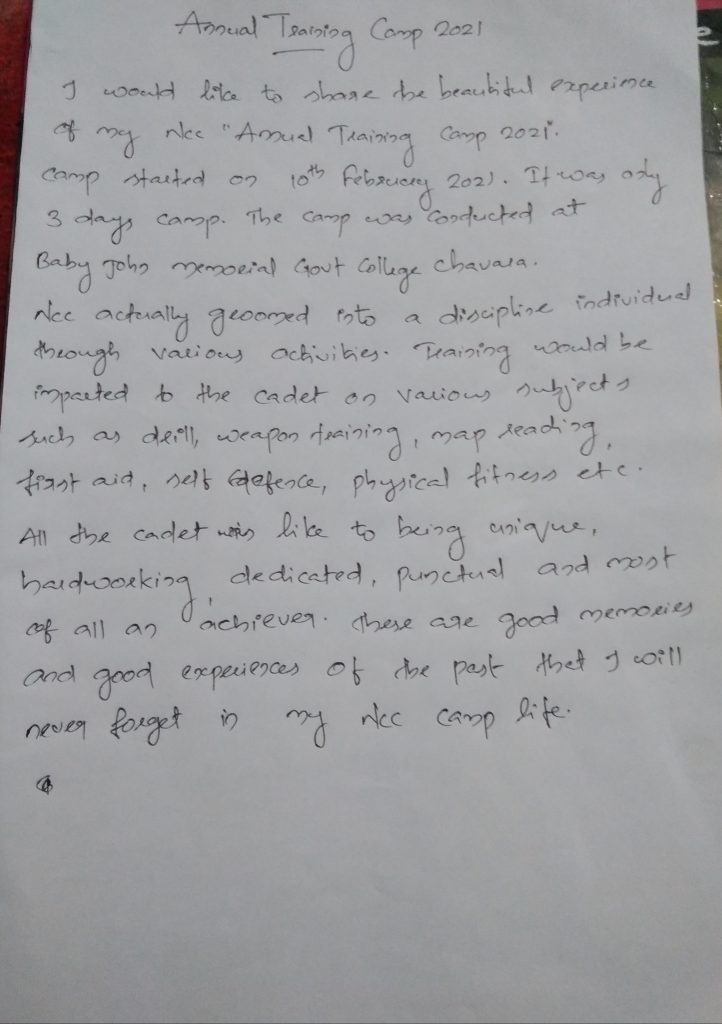 Annual Training Camp 2021
I would like to share the beautiful experience
of my Ncc "Annual Training Camp 2021".
Camp started on 10th February 2021. It was only
3 days camp. The camp was conducted at
Baby John memorial Govt College Chavara.
Ncc actually groomed into a discipline individual
through various activities. Training would be
imparted to the cadet on various subjects
such as drill, weapon training, map reading,
first aid, self defence, physical fitness etc.
All the cadet like to being unique,
hardworking, dedicated, punctual and most
of all an achiever. These are good memories
and good experiences of the past that I will
never forget in my Ncc camp life.